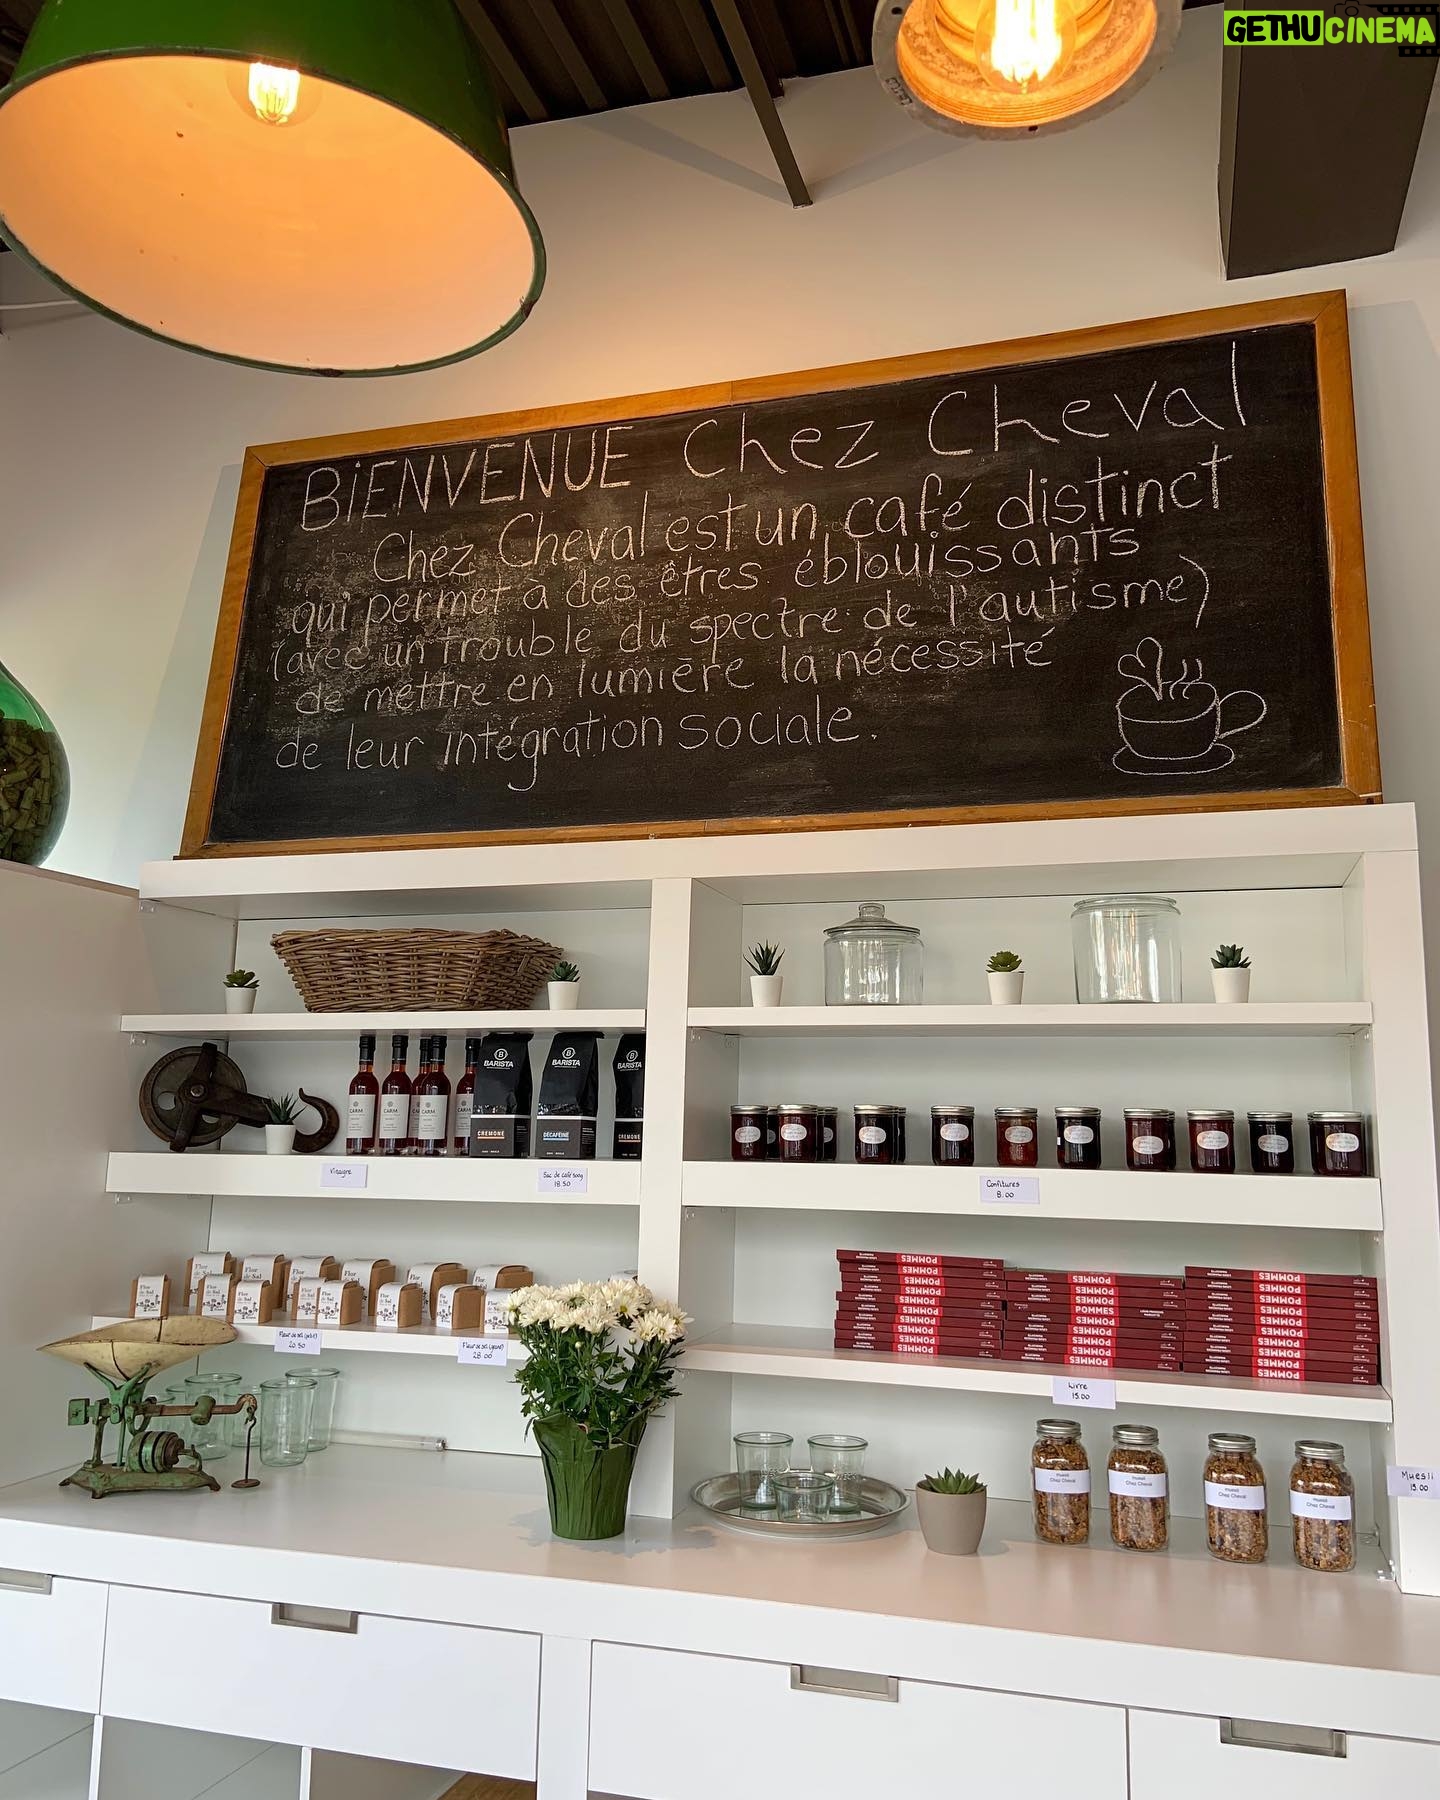 GETHUCINEMA
BIENVENUE Chez Cheval
Chez Cheval est un café distinct
qui permet à des êtres éblouissants
(avec un trouble du spectre de l'autisme)
de mettre en lumière la nécessité
de leur intégration sociale.
BARISTA BARISTA BARISTA
CARM CARM CARM CARM
CREMONE DÉCAFÉINÉ CREMONE
Vinaigre
Sac de café 500g
18.50
Confitures
8.00
Flor de Sal
Fleur de sel (petit)
20.50
Fleur de sel (grand)
28.00
POMMES
Livre
15.00
muesli
Chez Cheval
muesli
Chez Cheval
muesli
Chez Cheval
muesli
Chez Cheval
Muesli
15.00